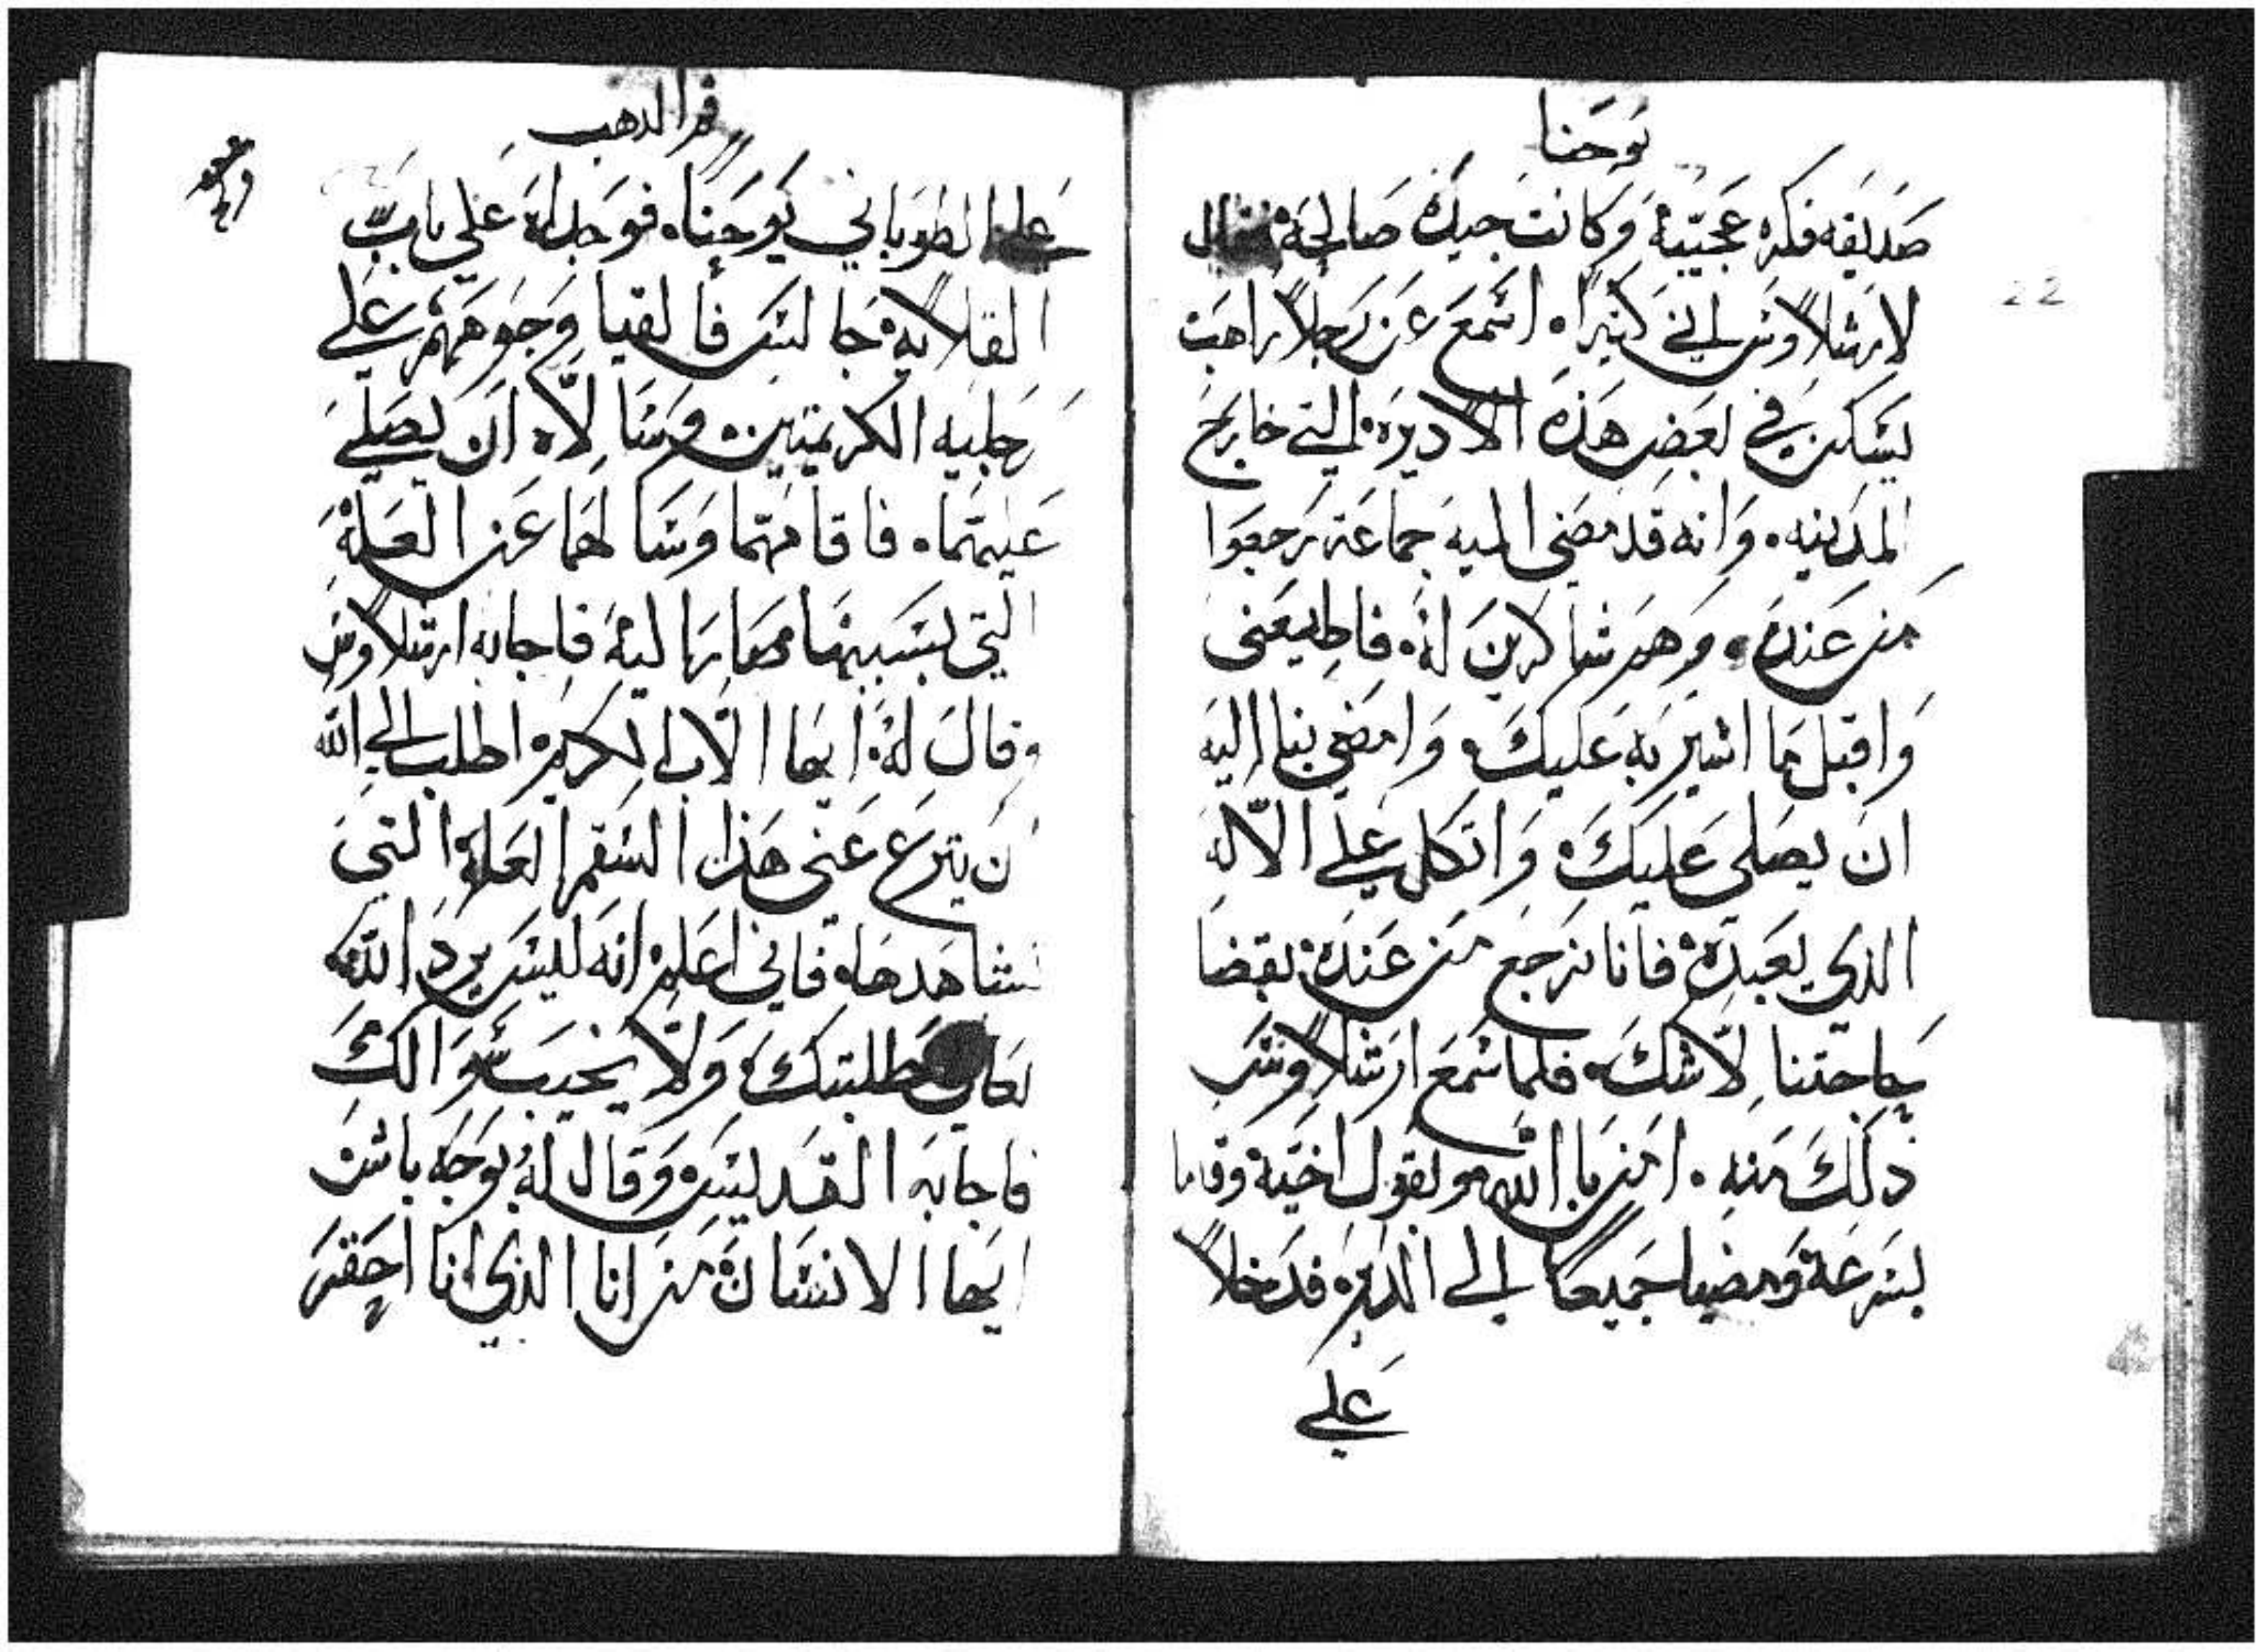 يوحنا
صديقه فكره عجيبة وكانت جيده صالحة فقال
لارشلاوس اني كثيراً اسمع عن رجلاً راهب
يسكن في بعض هذه الاديرة التي خارج
المدينه. وانه قد مضى اليه جماعة رجعوا
من عنده. وهم شاكرين له. فاطيعنى
واقبل ما اشير به عليك. وامضي بنا اليه
ان يصلى عليك. واتكل علي الاله
الذي يعبده. فانا نرجع من عنده بقضا
حاجتنا لاشك. فلما سمع ارشلاوس
ذلك منه. امن بالله ولقول اخيه وقاما
بسرعة ومضيا جميعاً الى الدير. فدخلا
علي
22
فم الدهب
علي الطوباني يوحنا. فوجداه علي باب
القلاية جالس فالقيا وجوههم علي
رجليه الكريمتين. وسالاه ان يصلي
عليهما. فاقامهما وسالهما عن العلة
التي بسببها صارا ليه فاجابه ارشلاوس
وقال له. ايها الاب الكريم. اطلب الي الله
ان ينزع عني هذا السقم العلة التي
تشاهدها. فاني اعلم انه ليس يرد الله
لك طلبتك. ولا يخيب سوالك
فاجابه القديس. وقال له بوجه باش
ايها الانسان من انا الذي انا احقر